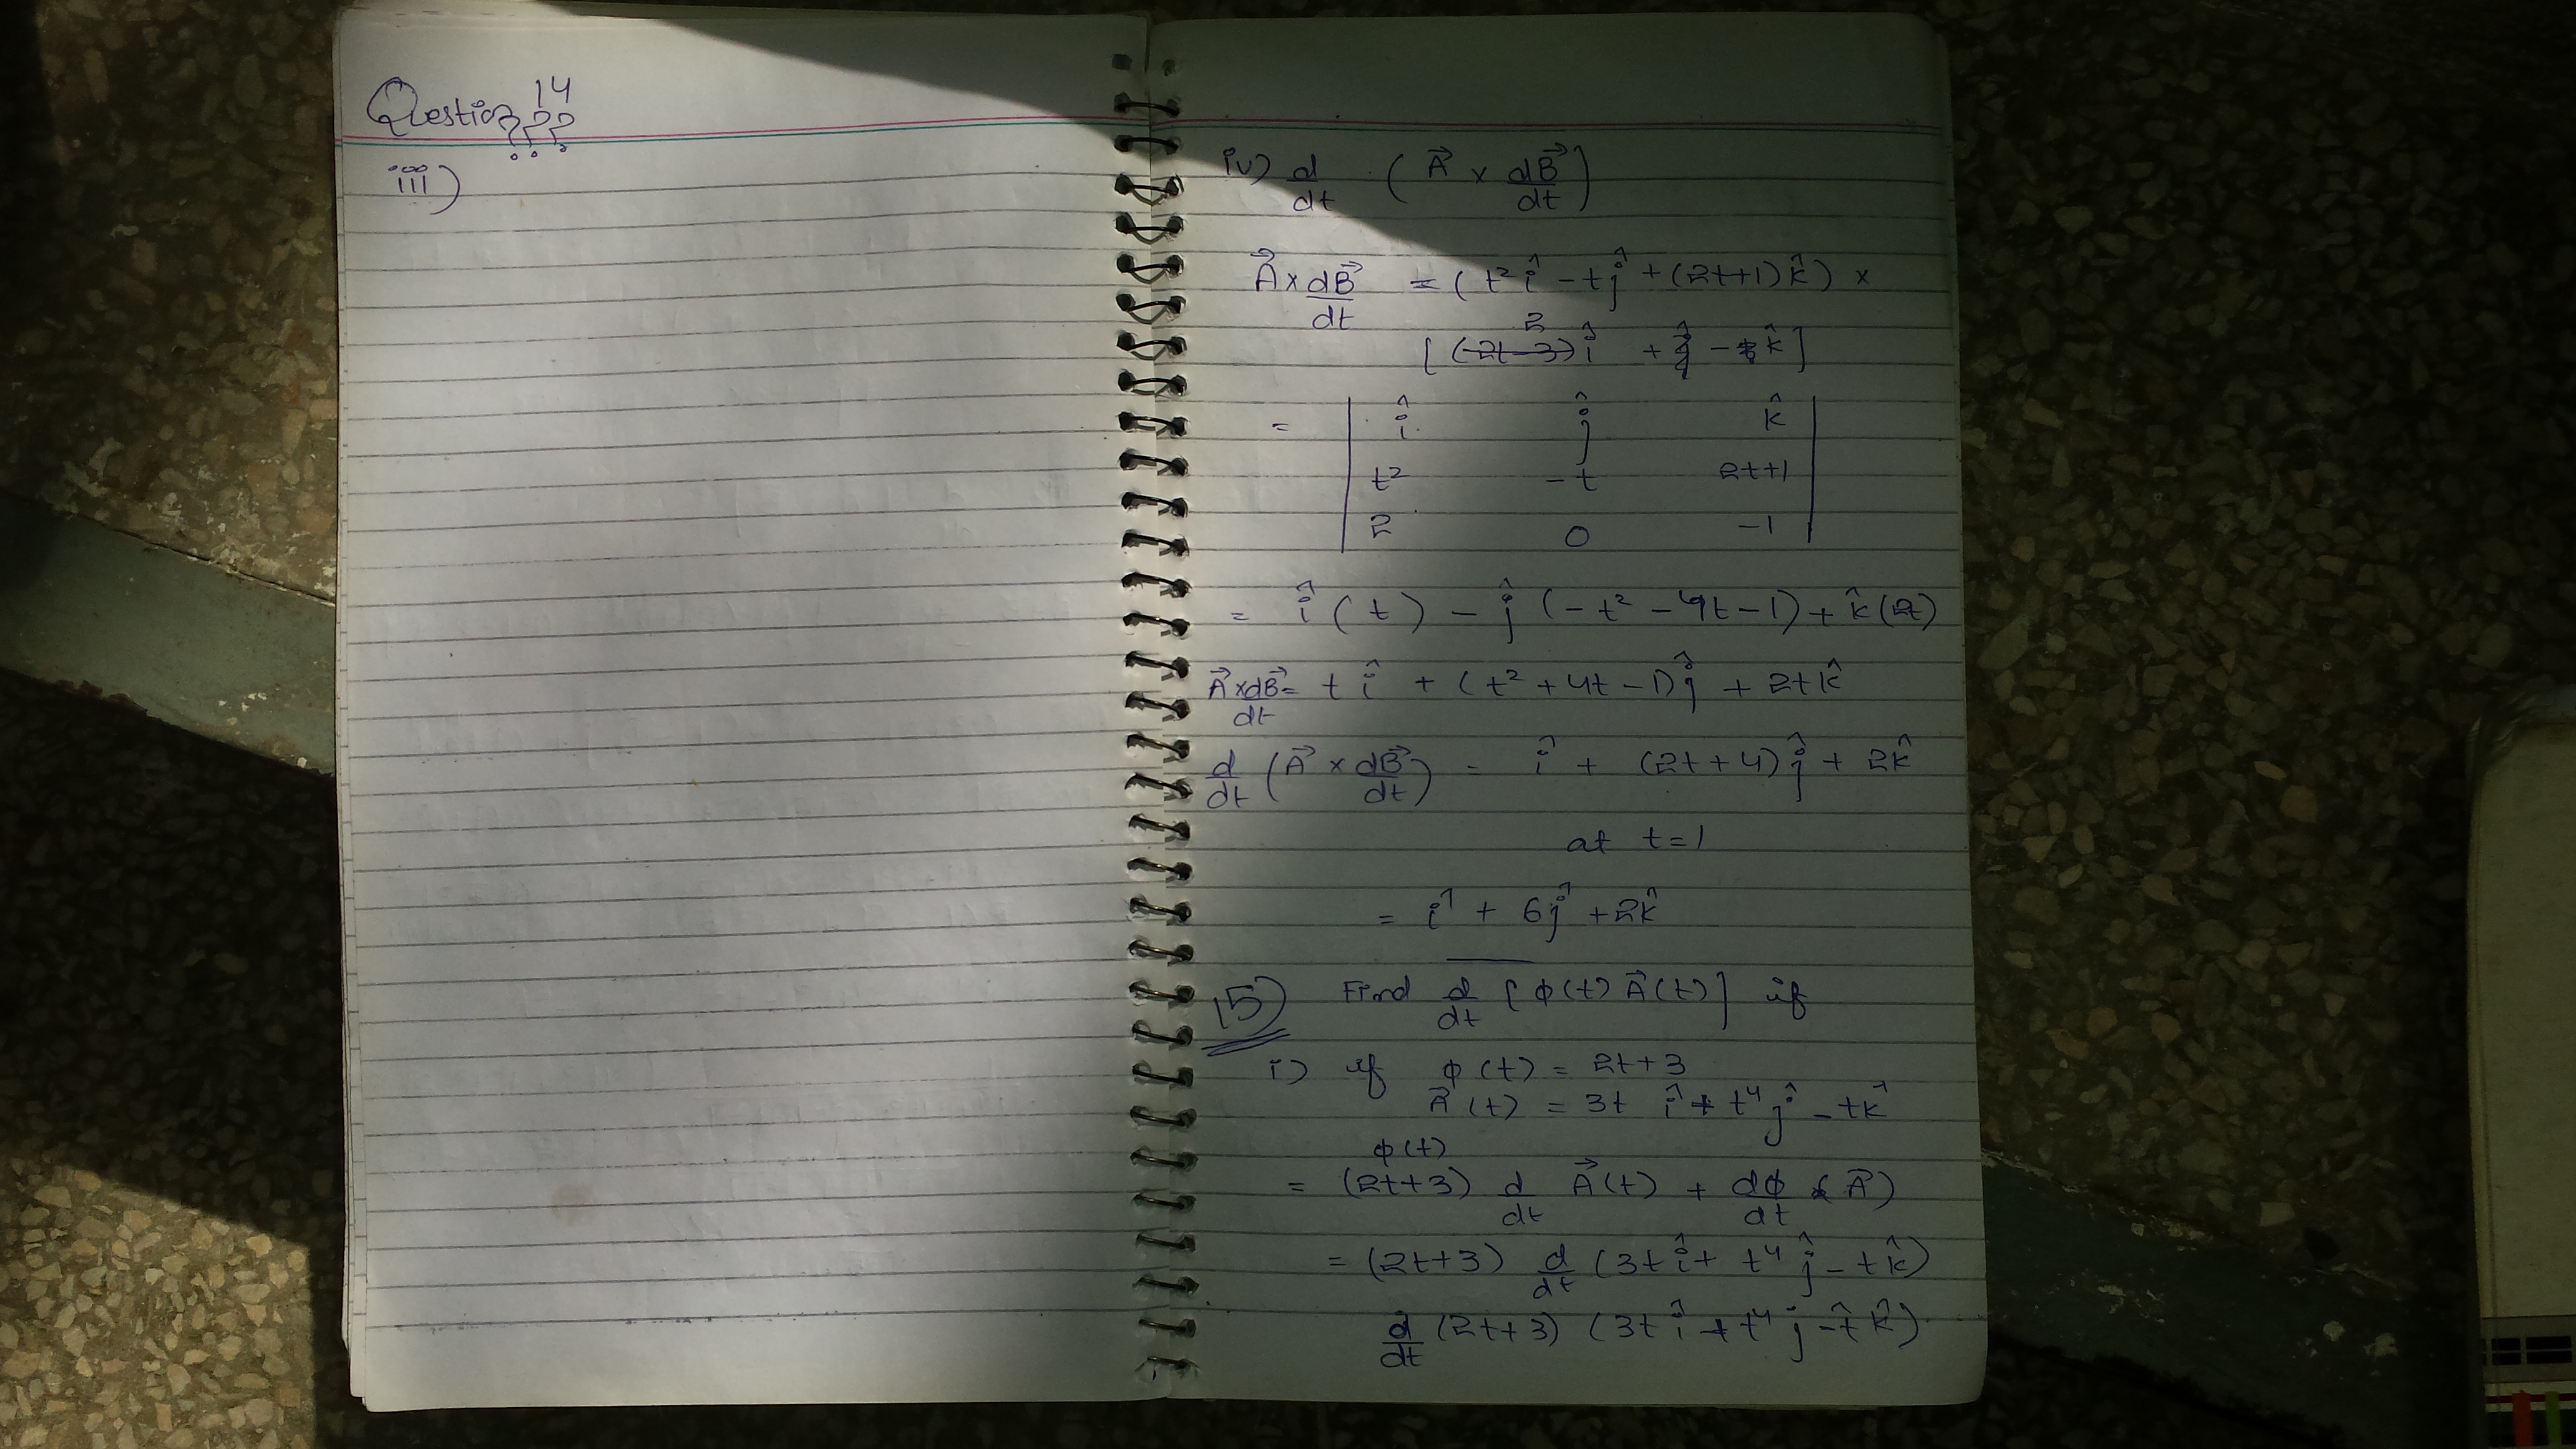 Question 14
???
iii)
iv) d/dt (A⃗ × dB⃗/dt)
A⃗ × dB⃗/dt = (t² î - t ĵ + (2t+1) k̂) ×
[2 î + - k̂]
= | î ĵ k̂ |
| t² -t 2t+1 |
| 2 0 -1 |
= î (t) - ĵ (-t² - 4t - 1) + k̂ (2t)
A⃗ × dB⃗/dt = t î + (t² + 4t - 1) ĵ + 2t k̂
d/dt (A⃗ × dB⃗/dt) = î + (2t + 4) ĵ + 2k̂
at t = 1
= î + 6ĵ + 2k̂
15) Find d/dt [ϕ(t) A⃗(t)] if
i) if ϕ(t) = 2t + 3
A⃗(t) = 3t î + t⁴ ĵ - t k̂
ϕ(t)
= (2t+3) d/dt A⃗(t) + dϕ/dt (A⃗)
= (2t+3) d/dt (3t î + t⁴ ĵ - t k̂)
d/dt (2t+3) (3t î + t⁴ ĵ - t k̂)